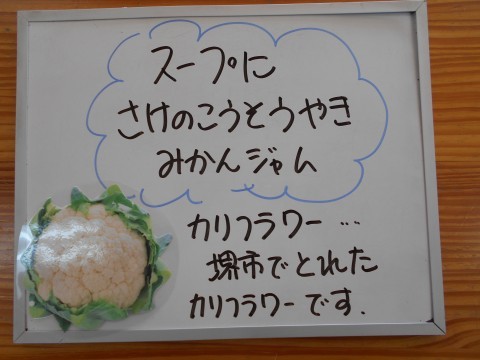 スープに
さけのこうそうやき
みかんジャム
カリフラワー…
堺市でとれた
カリフラワーです.